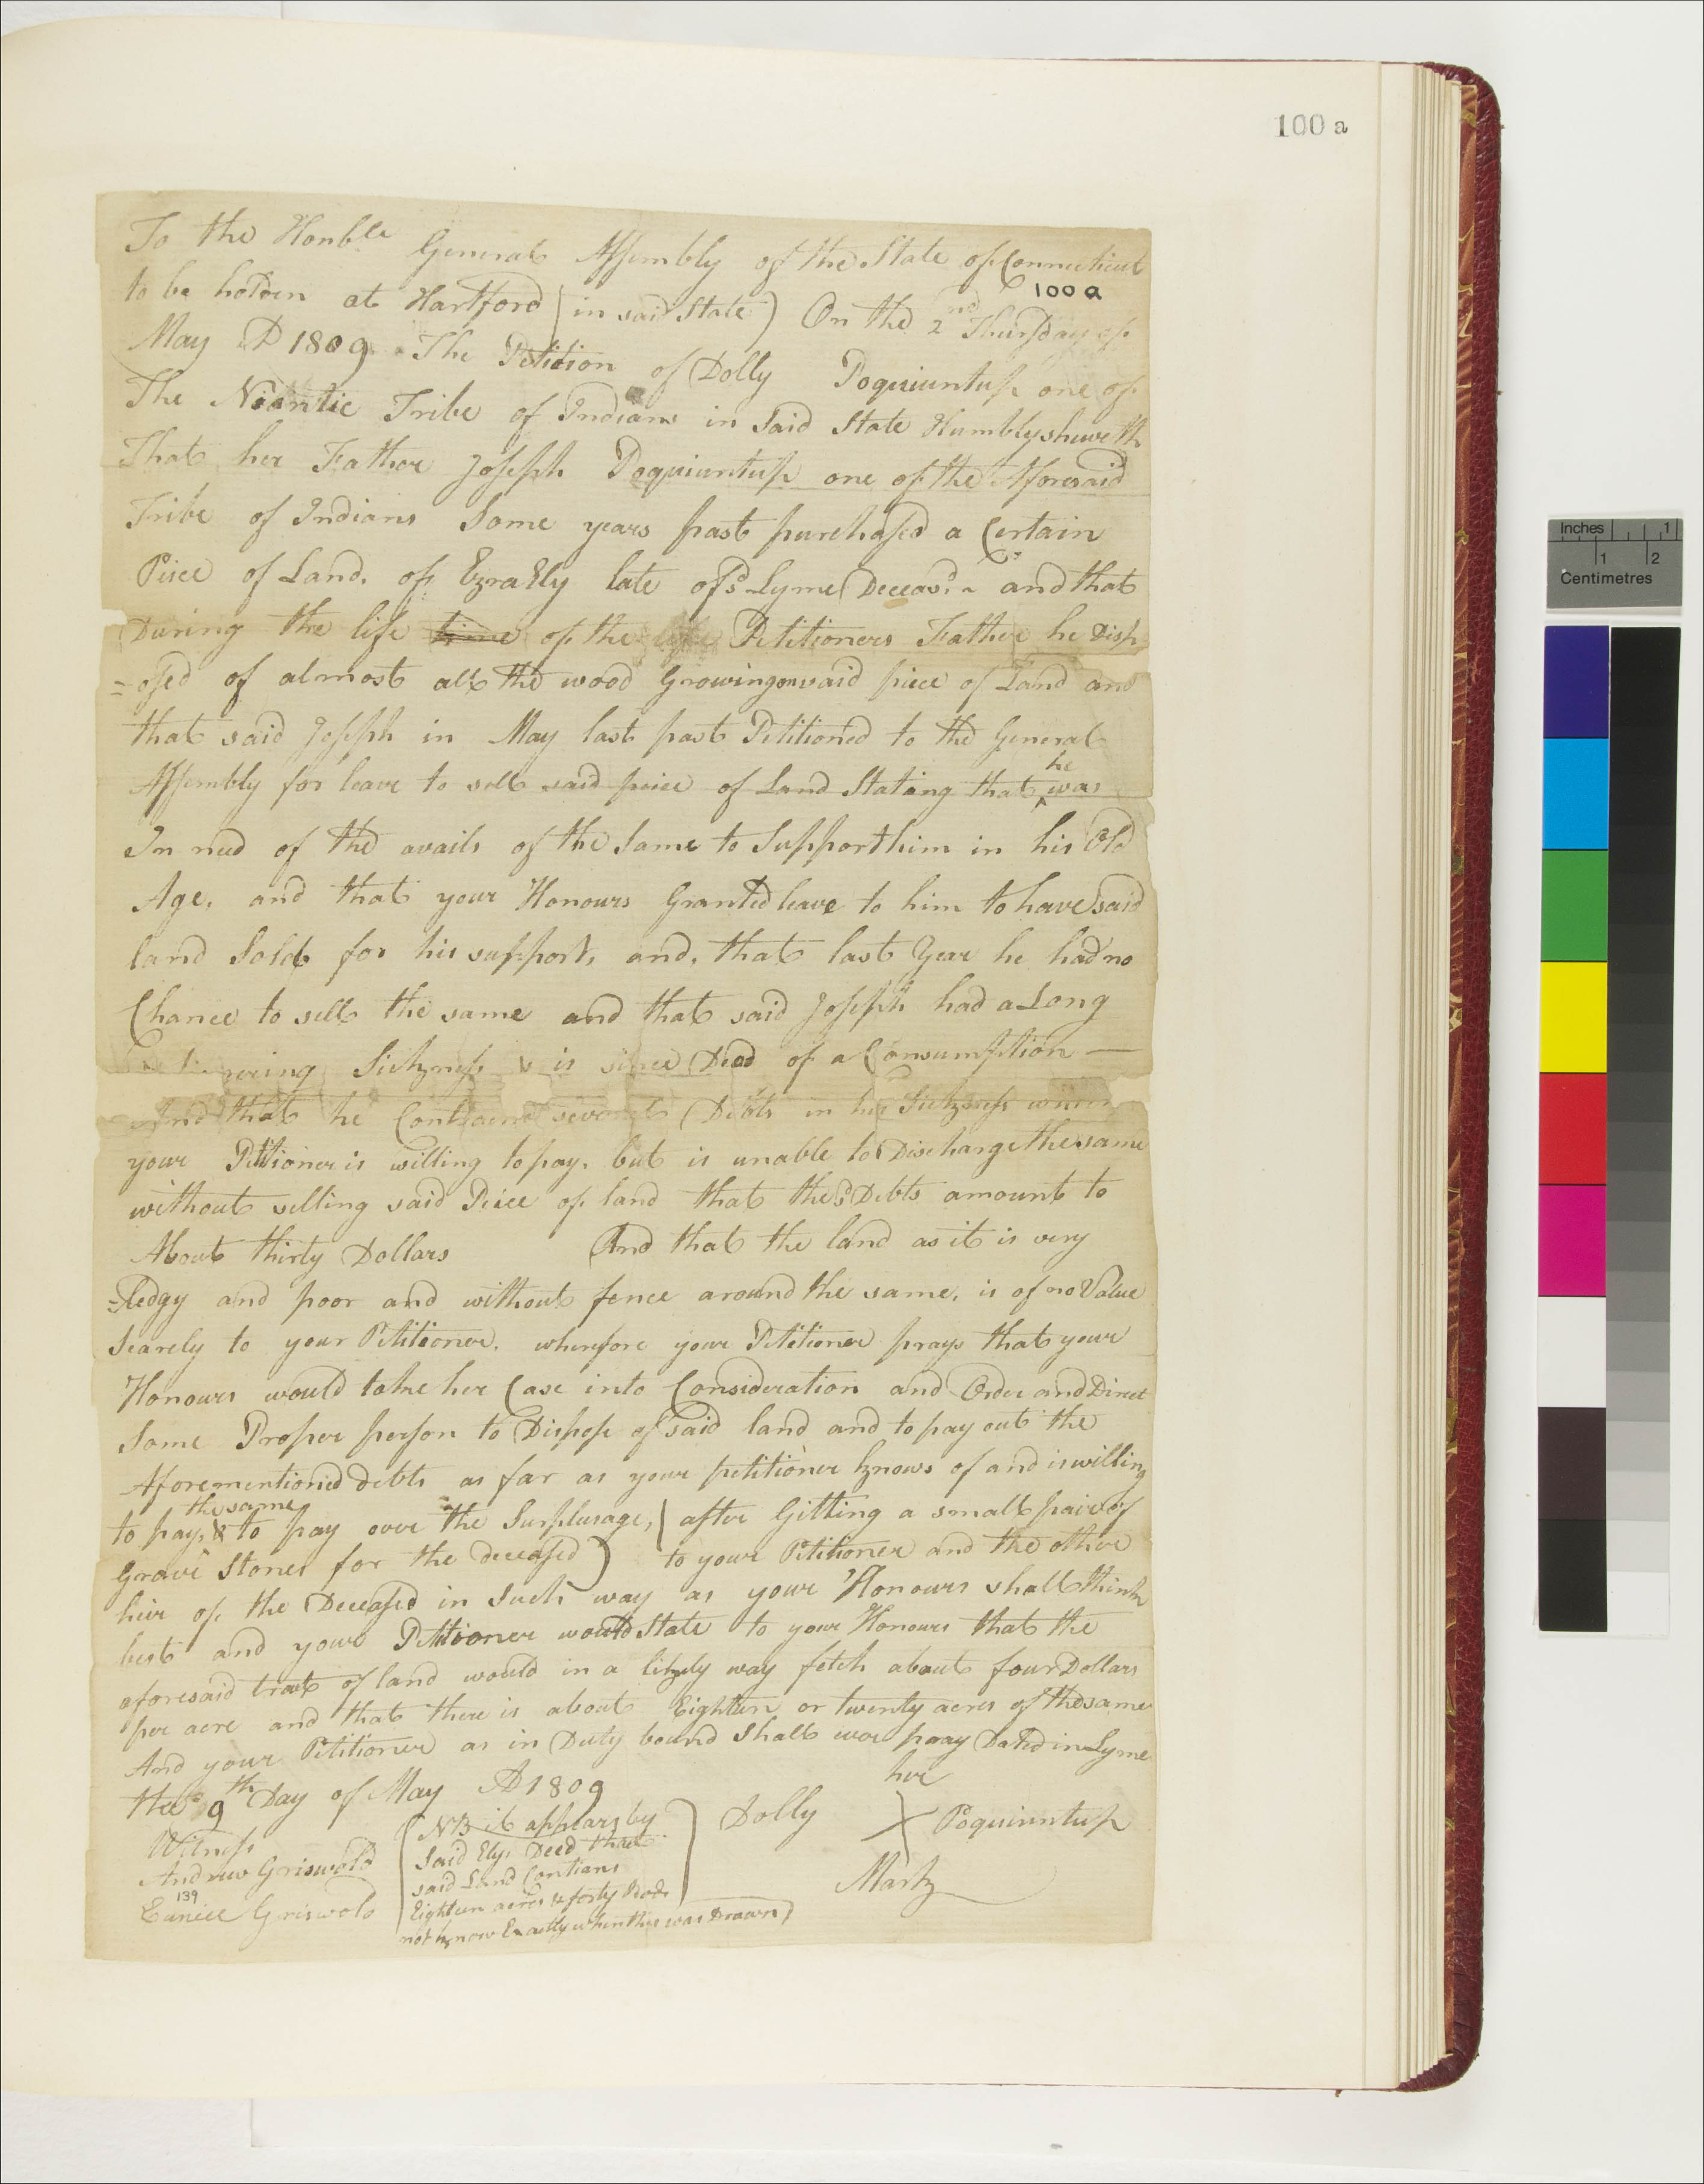 100 a
To the Honble General Assembly of the State of Connecticut
100 a
to be holden at Hartford (in said State) On the 2nd Thursday of
May AD 1809 The Petition of Dolly Poquiuntup one of
The Niantic Tribe of Indians in Said State Humbly sheweth
That her Father Joseph Poquiuntup one of the Aforesaid
Tribe of Indians Some years past purchased a Certain
Piece of Land, of Ezra Ely late of sd Lyme Deceasd. and that
During the life time of the Petitioners Father he Disp
=osed of almost all the wood Growing on said piece of Land and
that said Joseph in May last past Petitioned to the General
Assembly for leave to sell said peice of Land Stating that he was
In need of the avails of the Same to Support him in his Old
Age, and that your Honours Granted leave to him to have said
land Sold for his support, and, that last Year he had no
Chance to sell the same and that said Joseph had a Long
Sickness & is since Dead of a Consumption —
And that he Contracted several Debts in his Sickness which
your Petitioner is willing to pay, but is unable to Discharge the same
without selling said Peice of land that the sd Debts amount to
About thirty Dollars And that the land as it is very
=Ledgy and poor and without fence around the same, is of no Value
Scarely to your Petitioner, wherefore your Petitioner prays that your
Honours would take her Case into Consideration and Order and Direct
Some Proper person to Dispose of said land and to pay out the
Aforementioned debts as far as your petitioner knows of and is willing
the same
to pay, & to pay over the Surplusage, (after Gitting a small pair of
Grave Stones for the deceased) to your Petitioner and the other
heir of the Deceased in Such way as your Honours shall think
best and your Petitioner would State to your Honours that the
aforesaid tract of land would in a likely way fetch about four Dollars
per acre and that there is about Eighteen or twenty acres of the same
And your Petitioner as in Duty bound Shall ever pray Dated in Lyme
the 9th Day of May AD 1809
her
Dolly X Poquiuntup
Mark
Witness
Andrew Griswold
139
Eunice Griswold
NB it appears by
Said Elys Deed that
said Land Contians
Eighteen acres & forty Rods
not know Exactly when this was Drawn
Inches 1
1 2
Centimetres